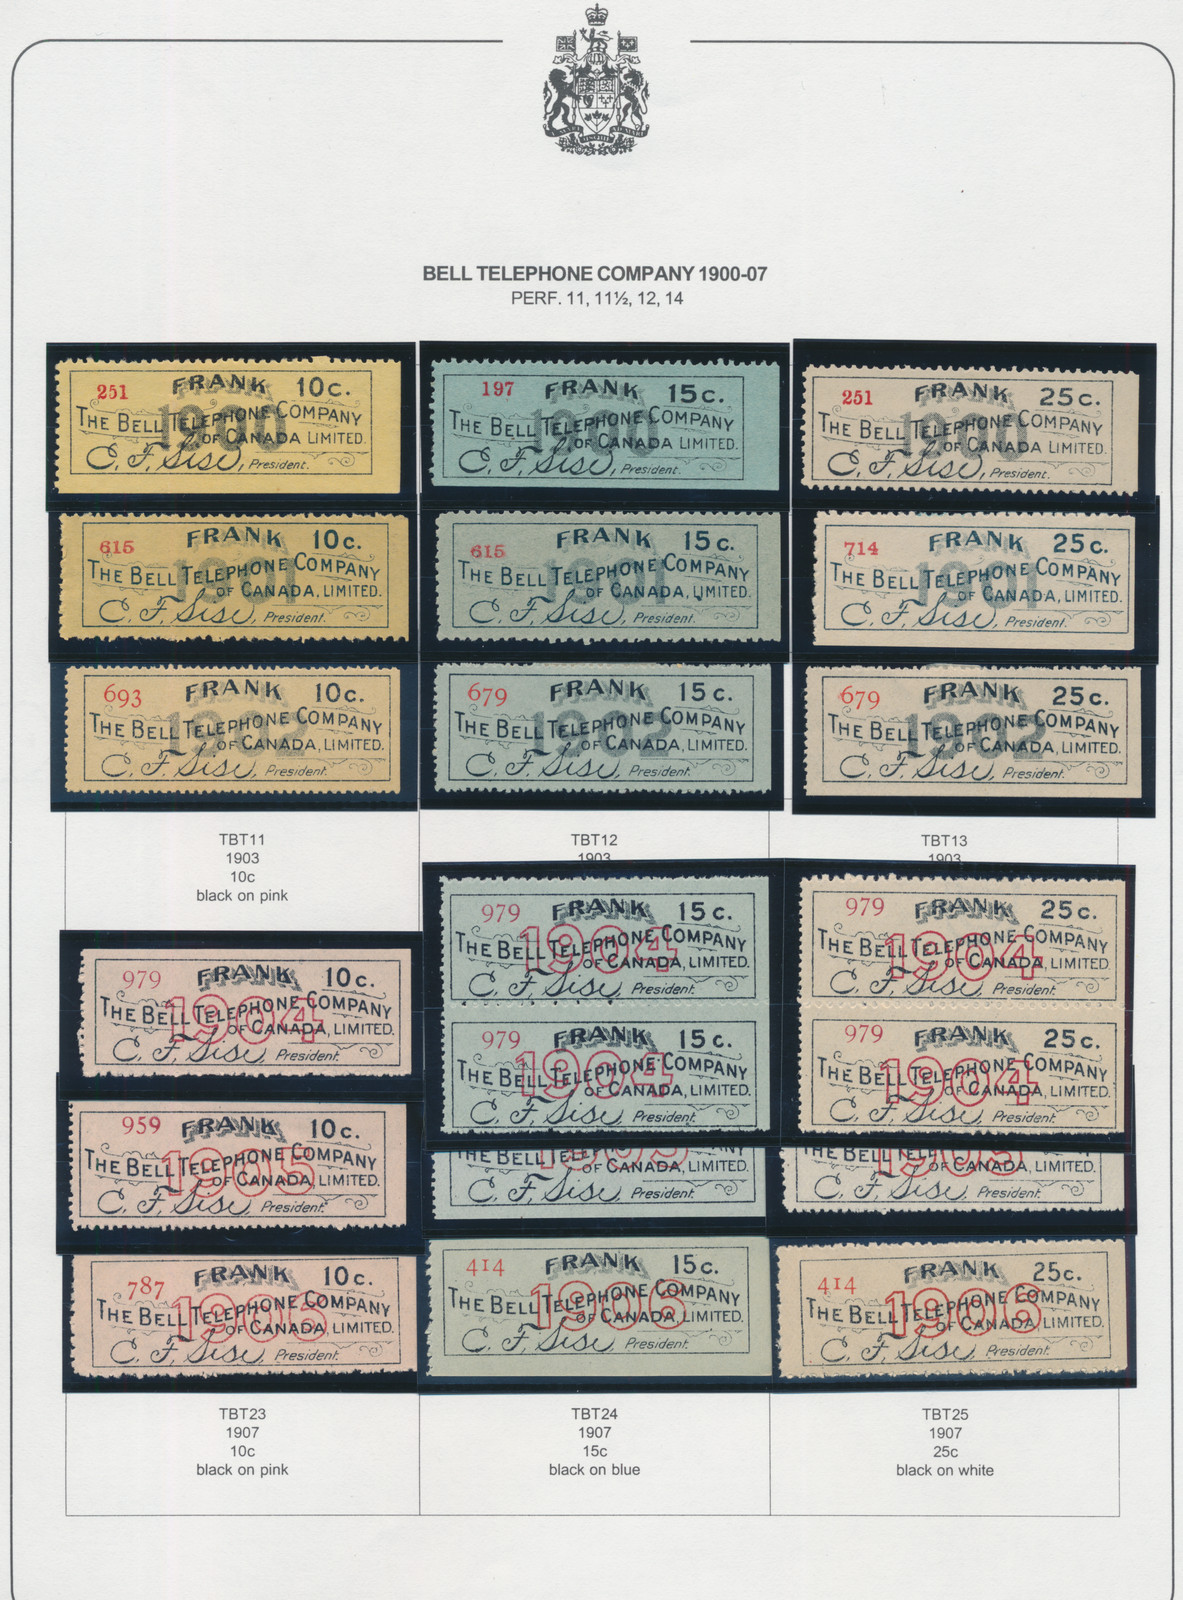 BELL TELEPHONE COMPANY 1900-07
PERF. 11, 11½, 12, 14
251 FRANK 10c.
1900
THE BELL TELEPHONE COMPANY
OF CANADA LIMITED.
C. F. Sise, President.
197 FRANK 15c.
1900
THE BELL TELEPHONE COMPANY
OF CANADA LIMITED.
C. F. Sise, President.
251 FRANK 25c.
1900
THE BELL TELEPHONE COMPANY
OF CANADA LIMITED.
C. F. Sise, President.
615 FRANK 10c.
1901
THE BELL TELEPHONE COMPANY
OF CANADA, LIMITED.
C. F. Sise, President.
615 FRANK 15c.
1901
THE BELL TELEPHONE COMPANY
OF CANADA, LIMITED.
C. F. Sise, President.
714 FRANK 25c.
1901
THE BELL TELEPHONE COMPANY
OF CANADA, LIMITED.
C. F. Sise, President.
693 FRANK 10c.
1902
THE BELL TELEPHONE COMPANY
OF CANADA, LIMITED.
C. F. Sise, President.
679 FRANK 15c.
1902
THE BELL TELEPHONE COMPANY
OF CANADA, LIMITED.
C. F. Sise, President.
679 FRANK 25c.
1902
THE BELL TELEPHONE COMPANY
OF CANADA, LIMITED.
C. F. Sise, President.
TBT11
1903
10c
black on pink
TBT12
1903
TBT13
1903
979 FRANK 10c.
1904
THE BELL TELEPHONE COMPANY
OF CANADA, LIMITED.
C. F. Sise, President.
979 FRANK 15c.
1904
THE BELL TELEPHONE COMPANY
OF CANADA, LIMITED.
C. F. Sise, President.
979 FRANK 15c.
1904
THE BELL TELEPHONE COMPANY
OF CANADA, LIMITED.
C. F. Sise, President.
979 FRANK 25c.
1904
THE BELL TELEPHONE COMPANY
OF CANADA, LIMITED.
C. F. Sise, President.
979 FRANK 25c.
1904
THE BELL TELEPHONE COMPANY
OF CANADA, LIMITED.
C. F. Sise, President.
959 FRANK 10c.
1905
THE BELL TELEPHONE COMPANY
OF CANADA, LIMITED.
C. F. Sise, President.
THE BELL TELEPHONE COMPANY
OF CANADA, LIMITED.
C. F. Sise, President.
THE BELL TELEPHONE COMPANY
OF CANADA, LIMITED.
C. F. Sise, President.
787 FRANK 10c.
1906
THE BELL TELEPHONE COMPANY
OF CANADA, LIMITED.
C. F. Sise, President.
414 FRANK 15c.
1906
THE BELL TELEPHONE COMPANY
OF CANADA, LIMITED.
C. F. Sise, President.
414 FRANK 25c.
1906
THE BELL TELEPHONE COMPANY
OF CANADA, LIMITED.
C. F. Sise, President.
TBT23
1907
10c
black on pink
TBT24
1907
15c
black on blue
TBT25
1907
25c
black on white